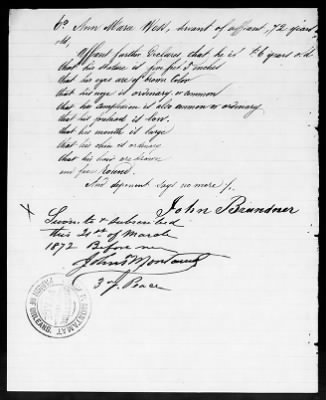 6° Ann Mara Webb, servant of affiant, 72 years
old,
Affiant further declares that he is 56 years old
that his stature is five feet 7 inches
that his eyes are of brown color
that his nose is ordinary or common
that his complexion is also common or ordinary.
that his forehead is low.
that his mouth is large
that his chin is ordinary
that his hair are brown
and face round.
And deponent says no more /.
John Brunsner
Sworn to & subscribed
this 21st of March
1872 Before me
3 J. Peace